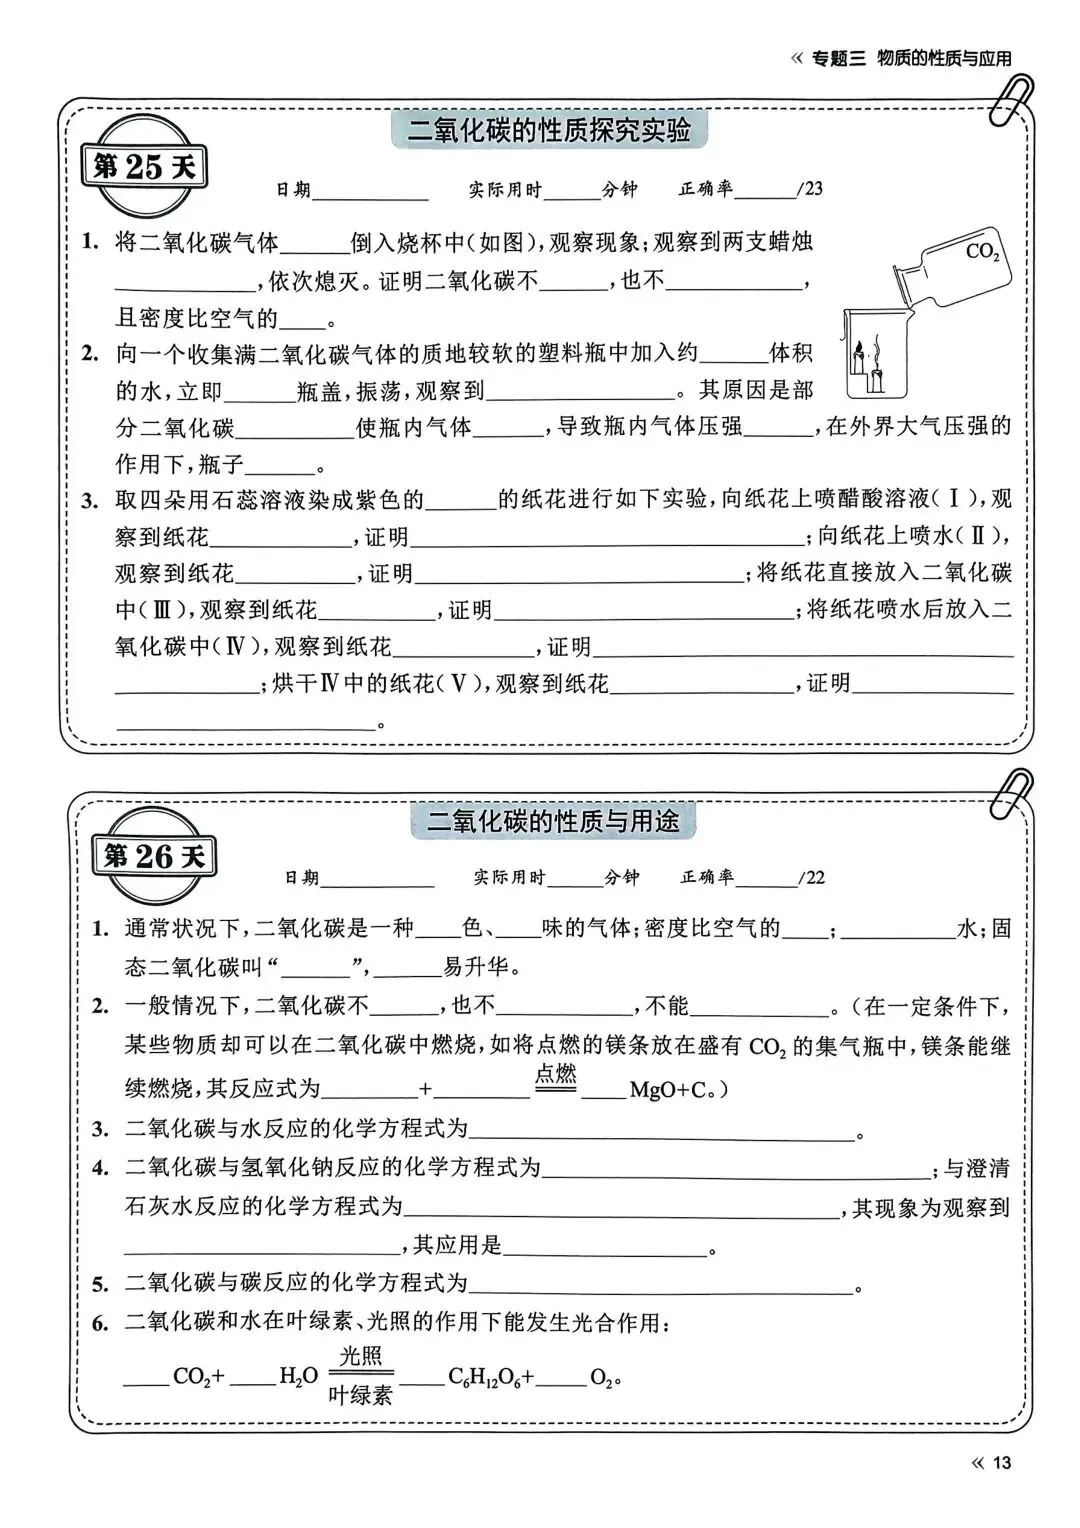 « 专题三 物质的性质与应用
二氧化碳的性质探究实验
第25天
日期__________ 实际用时_____分钟 正确率_____/23
1. 将二氧化碳气体______倒入烧杯中(如图),观察现象;观察到两支蜡烛
____________,依次熄灭。证明二氧化碳不______,也不____________,
且密度比空气的____。
CO₂
2. 向一个收集满二氧化碳气体的质地较软的塑料瓶中加入约______体积
的水,立即______瓶盖,振荡,观察到________________。其原因是部
分二氧化碳__________使瓶内气体______,导致瓶内气体压强______,在外界大气压强的
作用下,瓶子______。
3. 取四朵用石蕊溶液染成紫色的______的纸花进行如下实验,向纸花上喷醋酸溶液(Ⅰ),观
察到纸花____________,证明__________________________________;向纸花上喷水(Ⅱ),
观察到纸花__________,证明____________________________;将纸花直接放入二氧化碳
中(Ⅲ),观察到纸花__________,证明__________________________;将纸花喷水后放入二
氧化碳中(Ⅳ),观察到纸花____________,证明____________________________________
____________;烘干Ⅳ中的纸花(Ⅴ),观察到纸花________________,证明______________
______________________。
二氧化碳的性质与用途
第26天
日期__________ 实际用时_____分钟 正确率_____/22
1. 通常状况下,二氧化碳是一种____色、____味的气体;密度比空气的____;__________水;固
态二氧化碳叫“______”,______易升华。
2. 一般情况下,二氧化碳不______,也不____________,不能____________。(在一定条件下,
某些物质却可以在二氧化碳中燃烧,如将点燃的镁条放在盛有 CO₂ 的集气瓶中,镁条能继
续燃烧,其反应式为________+________ 点燃 ____MgO+C。)
3. 二氧化碳与水反应的化学方程式为________________________________。
4. 二氧化碳与氢氧化钠反应的化学方程式为________________________________;与澄清
石灰水反应的化学方程式为____________________________________,其现象为观察到
________________________,其应用是__________________。
5. 二氧化碳与碳反应的化学方程式为________________________________。
6. 二氧化碳和水在叶绿素、光照的作用下能发生光合作用:
____CO₂+____H₂O 光照 叶绿素 ____C₆H₁₂O₆+____O₂。
« 13